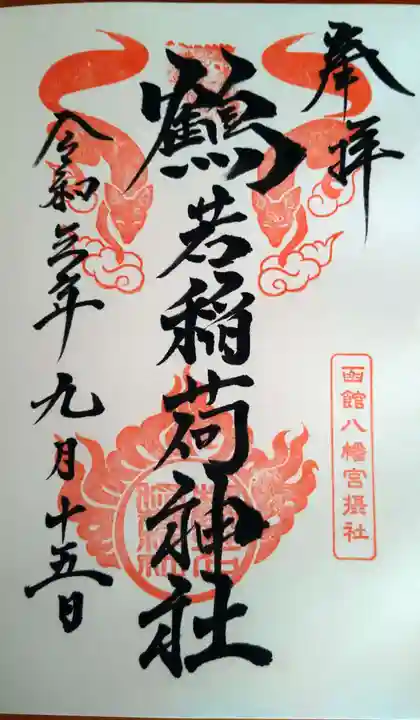 奉拝
函館八幡宮摂社
鶴若稲荷神社
令和三年九月十五日